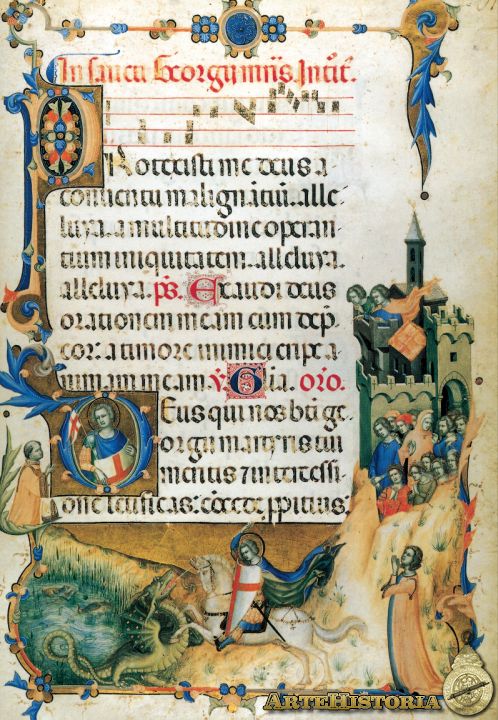 In sancti Georgii mr̄is. Introit̄.
PRotexisti me deus a
conuentu malignātiū. alle-
luya. a multitudine operan-
tium iniquitatem. alleluya.
alleluya. ps̄. Exaudi deus
orationem meam cum dep̄-
cor: a timore inimici eripe a
nimam meam v̄. Glīa. Orō.
DEus qui nos bt̄i ge-
orgii martyris tui
meritis 7 intercessi-
one letificas: cōcede ppitius:
ARTEHISTORIA